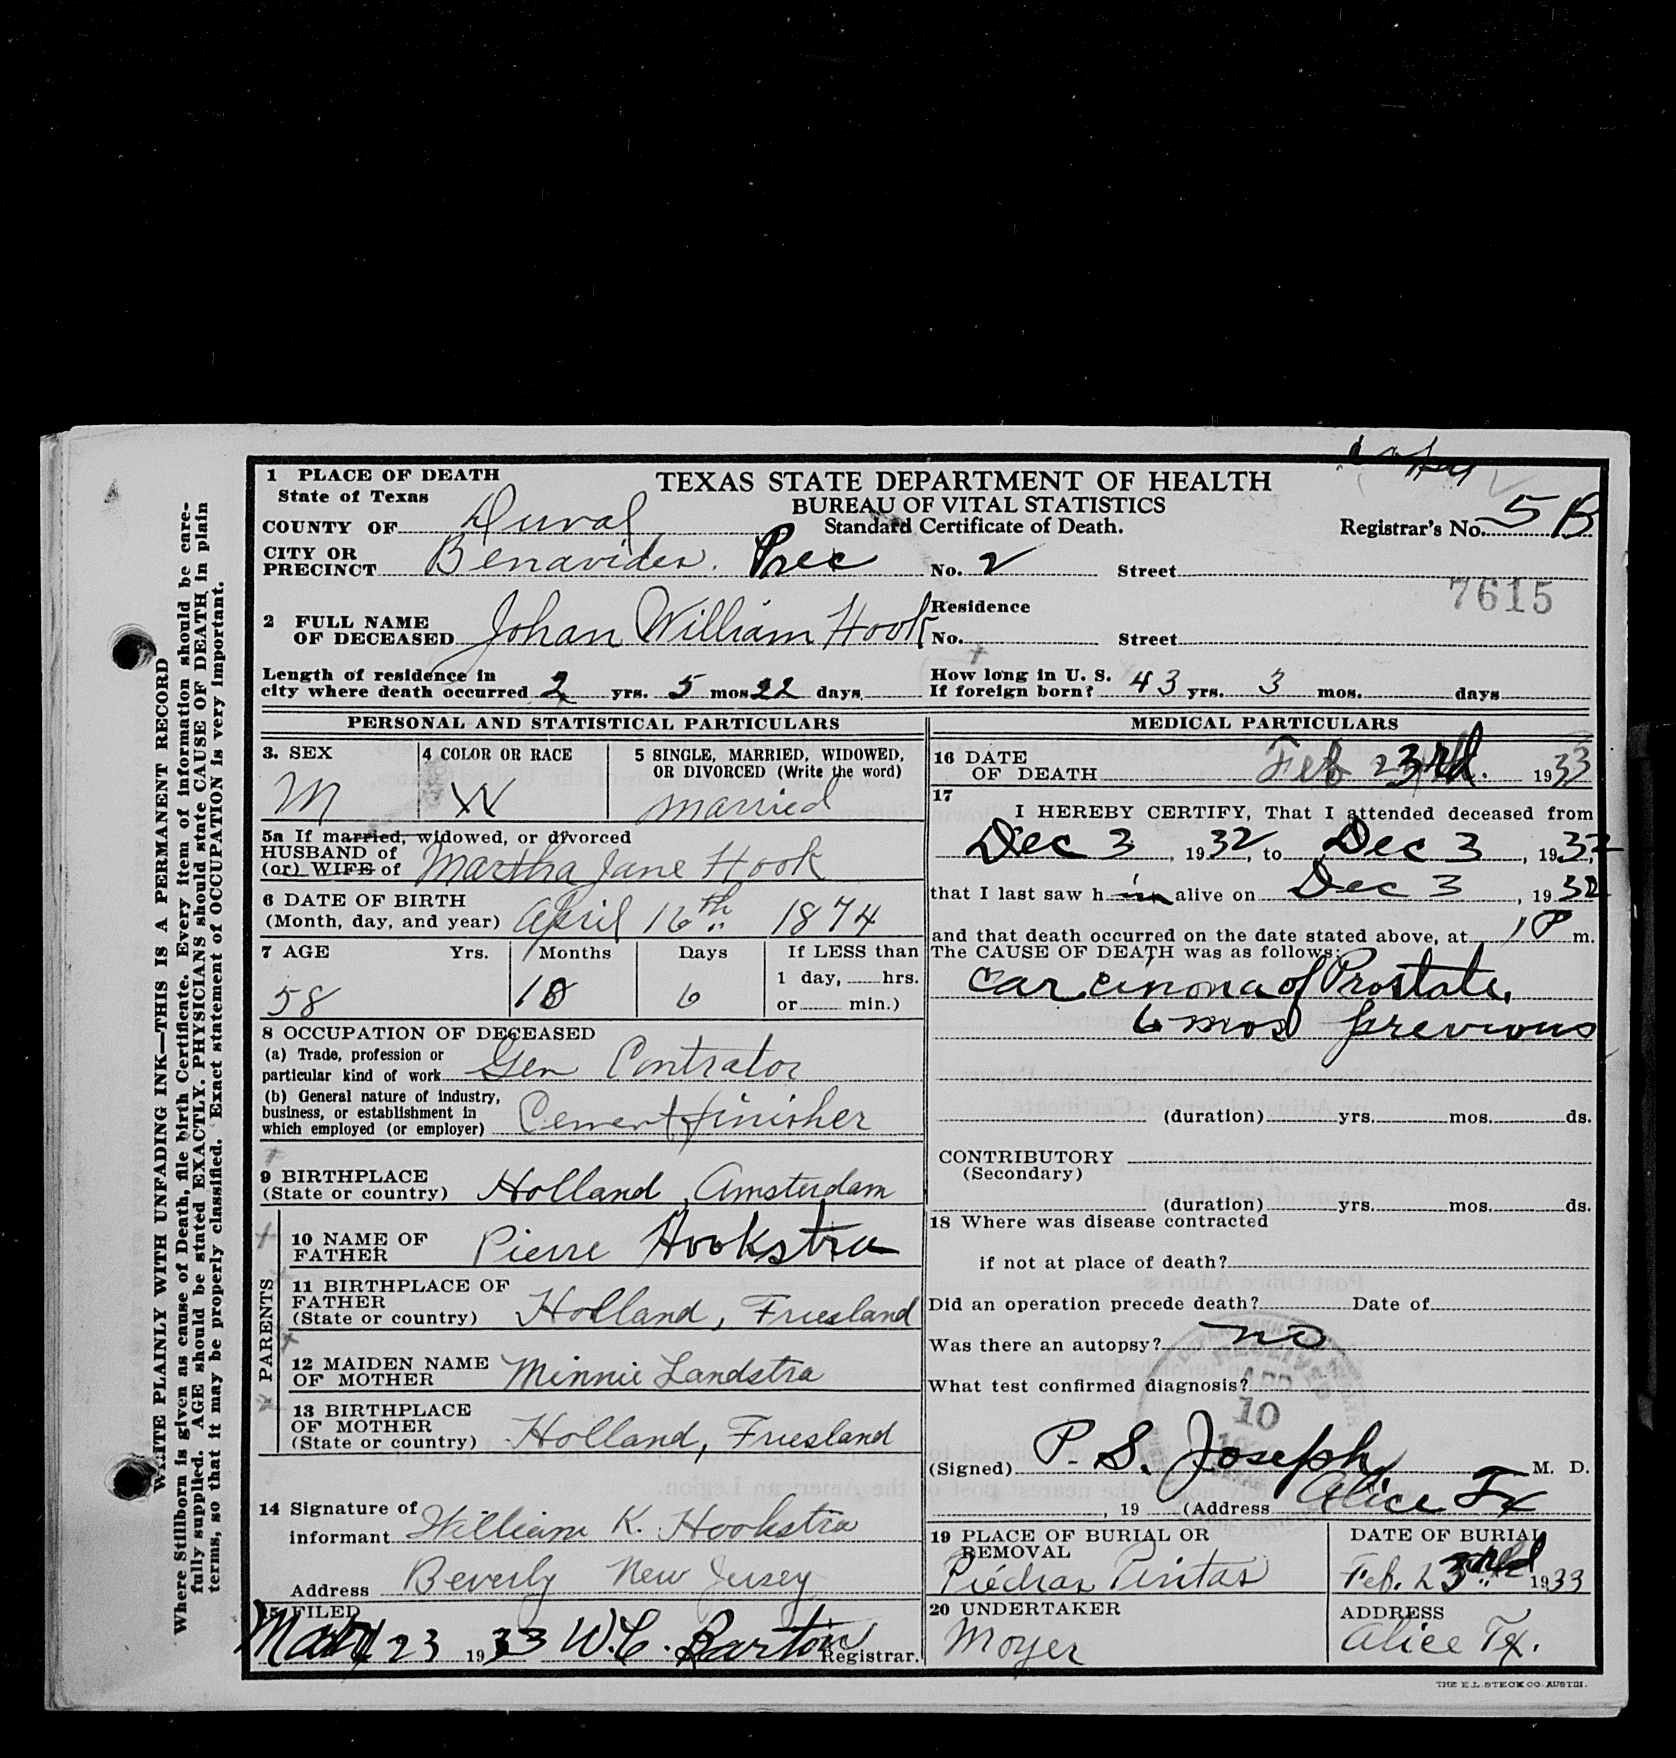 WRITE PLAINLY WITH UNFADING INK—THIS IS A PERMANENT RECORD
Where Stillborn is given as cause of Death, file birth Certificate. Every item of information should be care-
fully supplied. AGE should be stated EXACTLY. PHYSICIANS should state CAUSE OF DEATH in plain
terms, so that it may be properly classified. Exact statement of OCCUPATION is very important.
1 PLACE OF DEATH
State of Texas
TEXAS STATE DEPARTMENT OF HEALTH
BUREAU OF VITAL STATISTICS
Standard Certificate of Death.
COUNTY OF Duval
Registrar's No. 5 B
CITY OR
PRECINCT Benavides. Prec No. 2 Street
7615
2 FULL NAME
OF DECEASED Johan William Hook
Residence
No. Street
Length of residence in
city where death occurred 2 yrs. 5 mos 22 days
How long in U. S.
If foreign born? 43 yrs. 3 mos. days
PERSONAL AND STATISTICAL PARTICULARS
3. SEX
M
4 COLOR OR RACE
W
5 SINGLE, MARRIED, WIDOWED,
OR DIVORCED (Write the word)
married
5a If married, widowed, or divorced
HUSBAND of
(or) WIFE of Martha Jane Hook
6 DATE OF BIRTH
(Month, day, and year) April 16th 1874
7 AGE Yrs. Months Days If LESS than
1 day, hrs.
or min.)
58 10 6
8 OCCUPATION OF DECEASED
(a) Trade, profession or
particular kind of work Gen Contrator
(b) General nature of industry,
business, or establishment in
which employed (or employer) Cement finisher
9 BIRTHPLACE
(State or country) Holland, Amsterdam
PARENTS
10 NAME OF
FATHER Pierre Hookstra
11 BIRTHPLACE OF
FATHER
(State or country) Holland, Friesland
12 MAIDEN NAME
OF MOTHER Minnie Landstra
13 BIRTHPLACE
OF MOTHER
(State or country) Holland, Friesland
14 Signature of
informant William K. Hookstra
Address Beverly New Jersey
15 FILED
23 1933 W. C. Barton
Registrar.
MEDICAL PARTICULARS
16 DATE
OF DEATH Feb 23rd. 1933
17
I HEREBY CERTIFY, That I attended deceased from
Dec 3, 1932, to Dec 3, 1932,
that I last saw h im alive on Dec 3, 1932
and that death occurred on the date stated above, at 1 P m.
The CAUSE OF DEATH was as follows:
Carcinoma of Prostate.
6 mos previous
(duration) yrs. mos. ds.
CONTRIBUTORY
(Secondary)
(duration) yrs. mos. ds.
18 Where was disease contracted
if not at place of death?
Did an operation precede death? Date of
Was there an autopsy? no
What test confirmed diagnosis?
10
(Signed) P. S. Joseph, M. D.
, 19 (Address Alice Tx
19 PLACE OF BURIAL OR
REMOVAL
Piedras Pintas
DATE OF BURIAL
Feb. 23rd 1933
20 UNDERTAKER
Moyer
ADDRESS
Alice Tx.
THE E.L. STECK CO. AUSTIN.